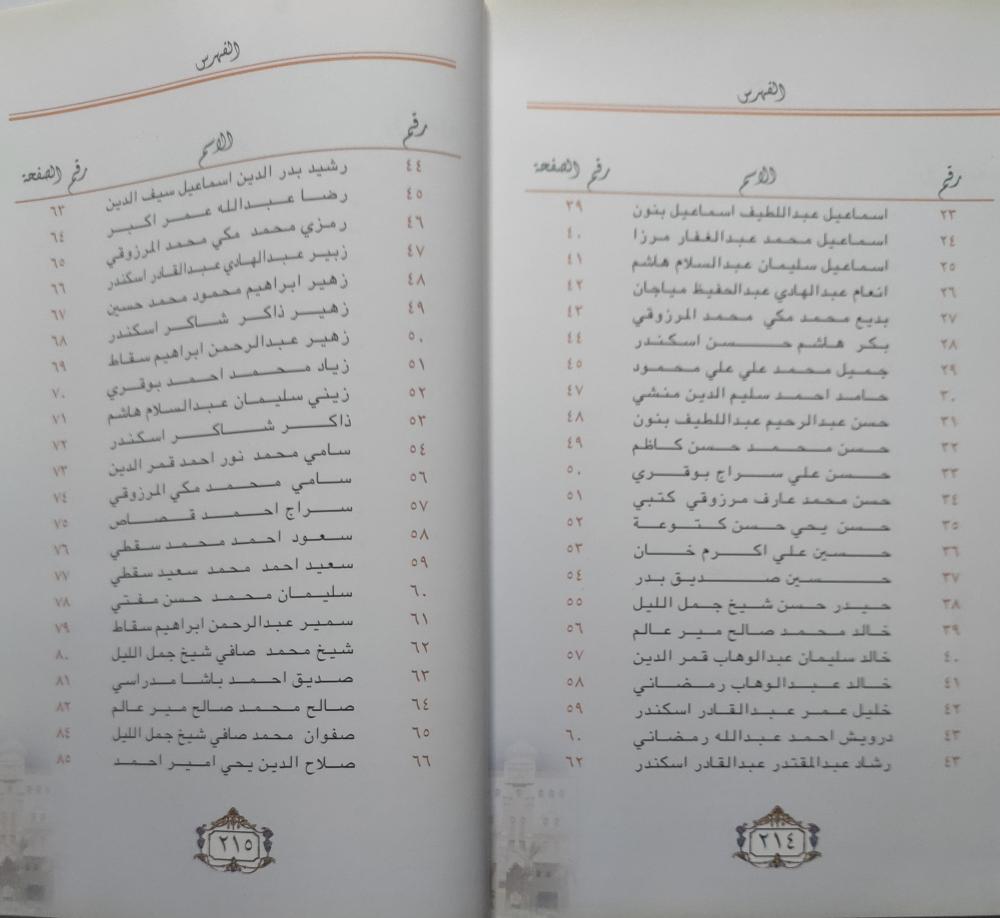 الفهرس
رقم الاسم رقم الصفحة
٢٣ اسماعيل عبداللطيف اسماعيل بنون ٣٩
٢٤ اسماعيل محمد عبدالغفار مرزا ٤٠
٢٥ اسماعيل سليمان عبدالسلام هاشم ٤١
٢٦ انعام عبدالهادي عبدالحفيظ مياجان ٤٢
٢٧ بديع محمد مكي محمد المرزوقي ٤٣
٢٨ بكر هاشم حسن اسكندر ٤٤
٢٩ جميل محمد علي علي محمود ٤٥
٣٠ حامد احمد سليم الدين منشي ٤٧
٣١ حسن عبدالرحيم عبداللطيف بنون ٤٨
٣٢ حسن محمد حسن كاظم ٤٩
٣٣ حسن علي سراج بوقري ٥٠
٣٤ حسن محمد عارف مرزوقي كتبي ٥١
٣٥ حسن يحي حسن كتوعة ٥٢
٣٦ حسين علي اكرم خان ٥٣
٣٧ حسين صديق بدر ٥٤
٣٨ حيدر حسن شيخ جمل الليل ٥٥
٣٩ خالد محمد صالح مير عالم ٥٦
٤٠ خالد سليمان عبدالوهاب قمر الدين ٥٧
٤١ خالد عبدالوهاب رمضاني ٥٨
٤٢ خليل عمر عبدالقادر اسكندر ٥٩
٤٣ درويش احمد عبدالله رمضاني ٦٠
٤٣ رشاد عبدالمقتدر عبدالقادر اسكندر ٦٢
٢١٤
الفهرس
رقم الاسم رقم الصفحة
٤٤ رشيد بدر الدين اسماعيل سيف الدين ٦٣
٤٥ رضا عبدالله عمر اكبر ٦٤
٤٦ رمزي محمد مكي محمد المرزوقي ٦٥
٤٧ زبير عبدالهادي عبدالقادر اسكندر ٦٦
٤٨ زهير ابراهيم محمود محمد حسين ٦٧
٤٩ زهير ذاكر شاكر اسكندر ٦٨
٥٠ زهير عبدالرحمن ابراهيم سقاط ٦٩
٥١ زياد محمد احمد بوقري ٧٠
٥٢ زيني سليمان عبدالسلام هاشم ٧١
٥٣ ذاكر شاكر اسكندر ٧٢
٥٤ سامي محمد نور احمد قمر الدين ٧٣
٥٦ سامي محمد مكي المرزوقي ٧٤
٥٧ سراج احمد قصاص ٧٥
٥٨ سعود احمد محمد سقطي ٧٦
٥٩ سعيد احمد محمد سعيد سقطي ٧٧
٦٠ سليمان محمد حسن مفتي ٧٨
٦١ سمير عبدالرحمن ابراهيم سقاط ٧٩
٦٢ شيخ محمد صافي شيخ جمل الليل ٨٠
٦٣ صديق احمد باشا مدراسي ٨١
٦٤ صالح محمد صالح مير عالم ٨٢
٦٥ صفوان محمد صافي شيخ جمل الليل ٨٤
٦٦ صلاح الدين يحي امير احمد ٨٥
٢١٥